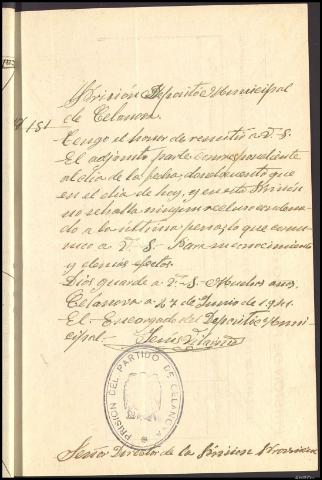 Prisión Deposito Municipal
de Celanova.
151
Tengo el honor de remitir a V. S.
El adjunto parte correspondiente
al dia de la fecha, dando cuento que
en el dia de hoy, y en esta Prisión
no se halla ningun recluso condena-
do a la ultima pena, lo que comu-
nico a V. S. Para su conocimiento
y demas efectos.
Dios guarde a V. S. Muchos anos.
Celanova a 27 de Junio de 1941.
El Encargado del Deposito Muni-
cipal.
PRISION DEL PARTIDO DE CELANOVA
Señor Director de la Prision Provincial